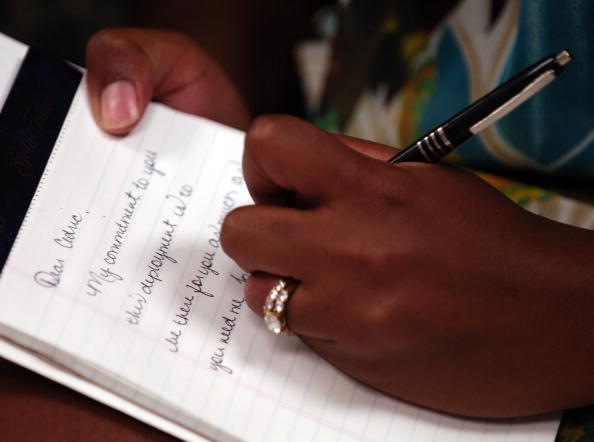 Dear Cedric,
My commitment to you
this deployment is to
be there for you whenever
you need me